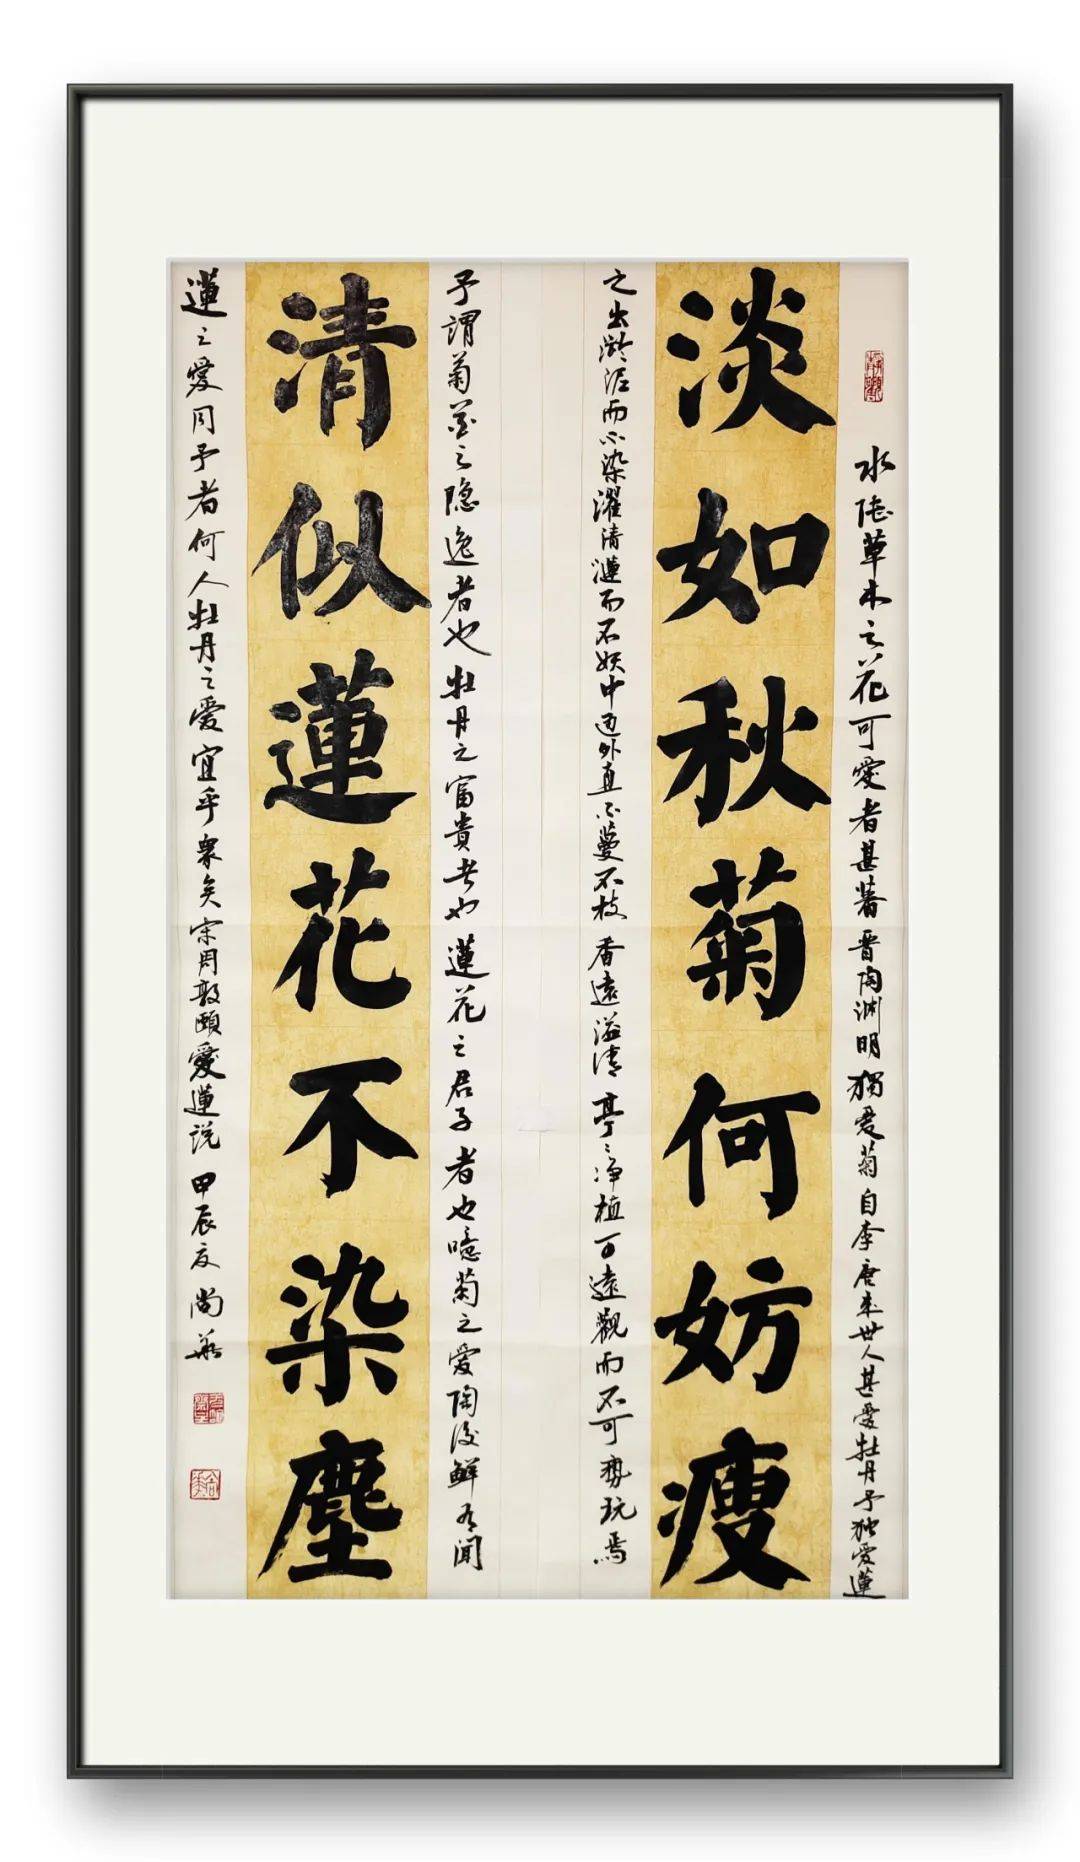 水陸草木之花可愛者甚蕃晋陶渊明獨爱菊自李唐来世人甚愛牡丹予独爱蓮
淡如秋菊何妨瘦
之出淤泥而不染濯清漣而不妖中通外直不蔓不枝香遠溢清亭亭净植可遠觀而不可亵玩焉
予謂菊花之隐逸者也牡丹之富貴者也蓮花之君子者也噫菊之爱陶後鲜有闻
清似蓮花不染塵
蓮之爱同予者何人牡丹之爱宜乎衆矣宋周敦頤爱蓮説甲辰夏尚華